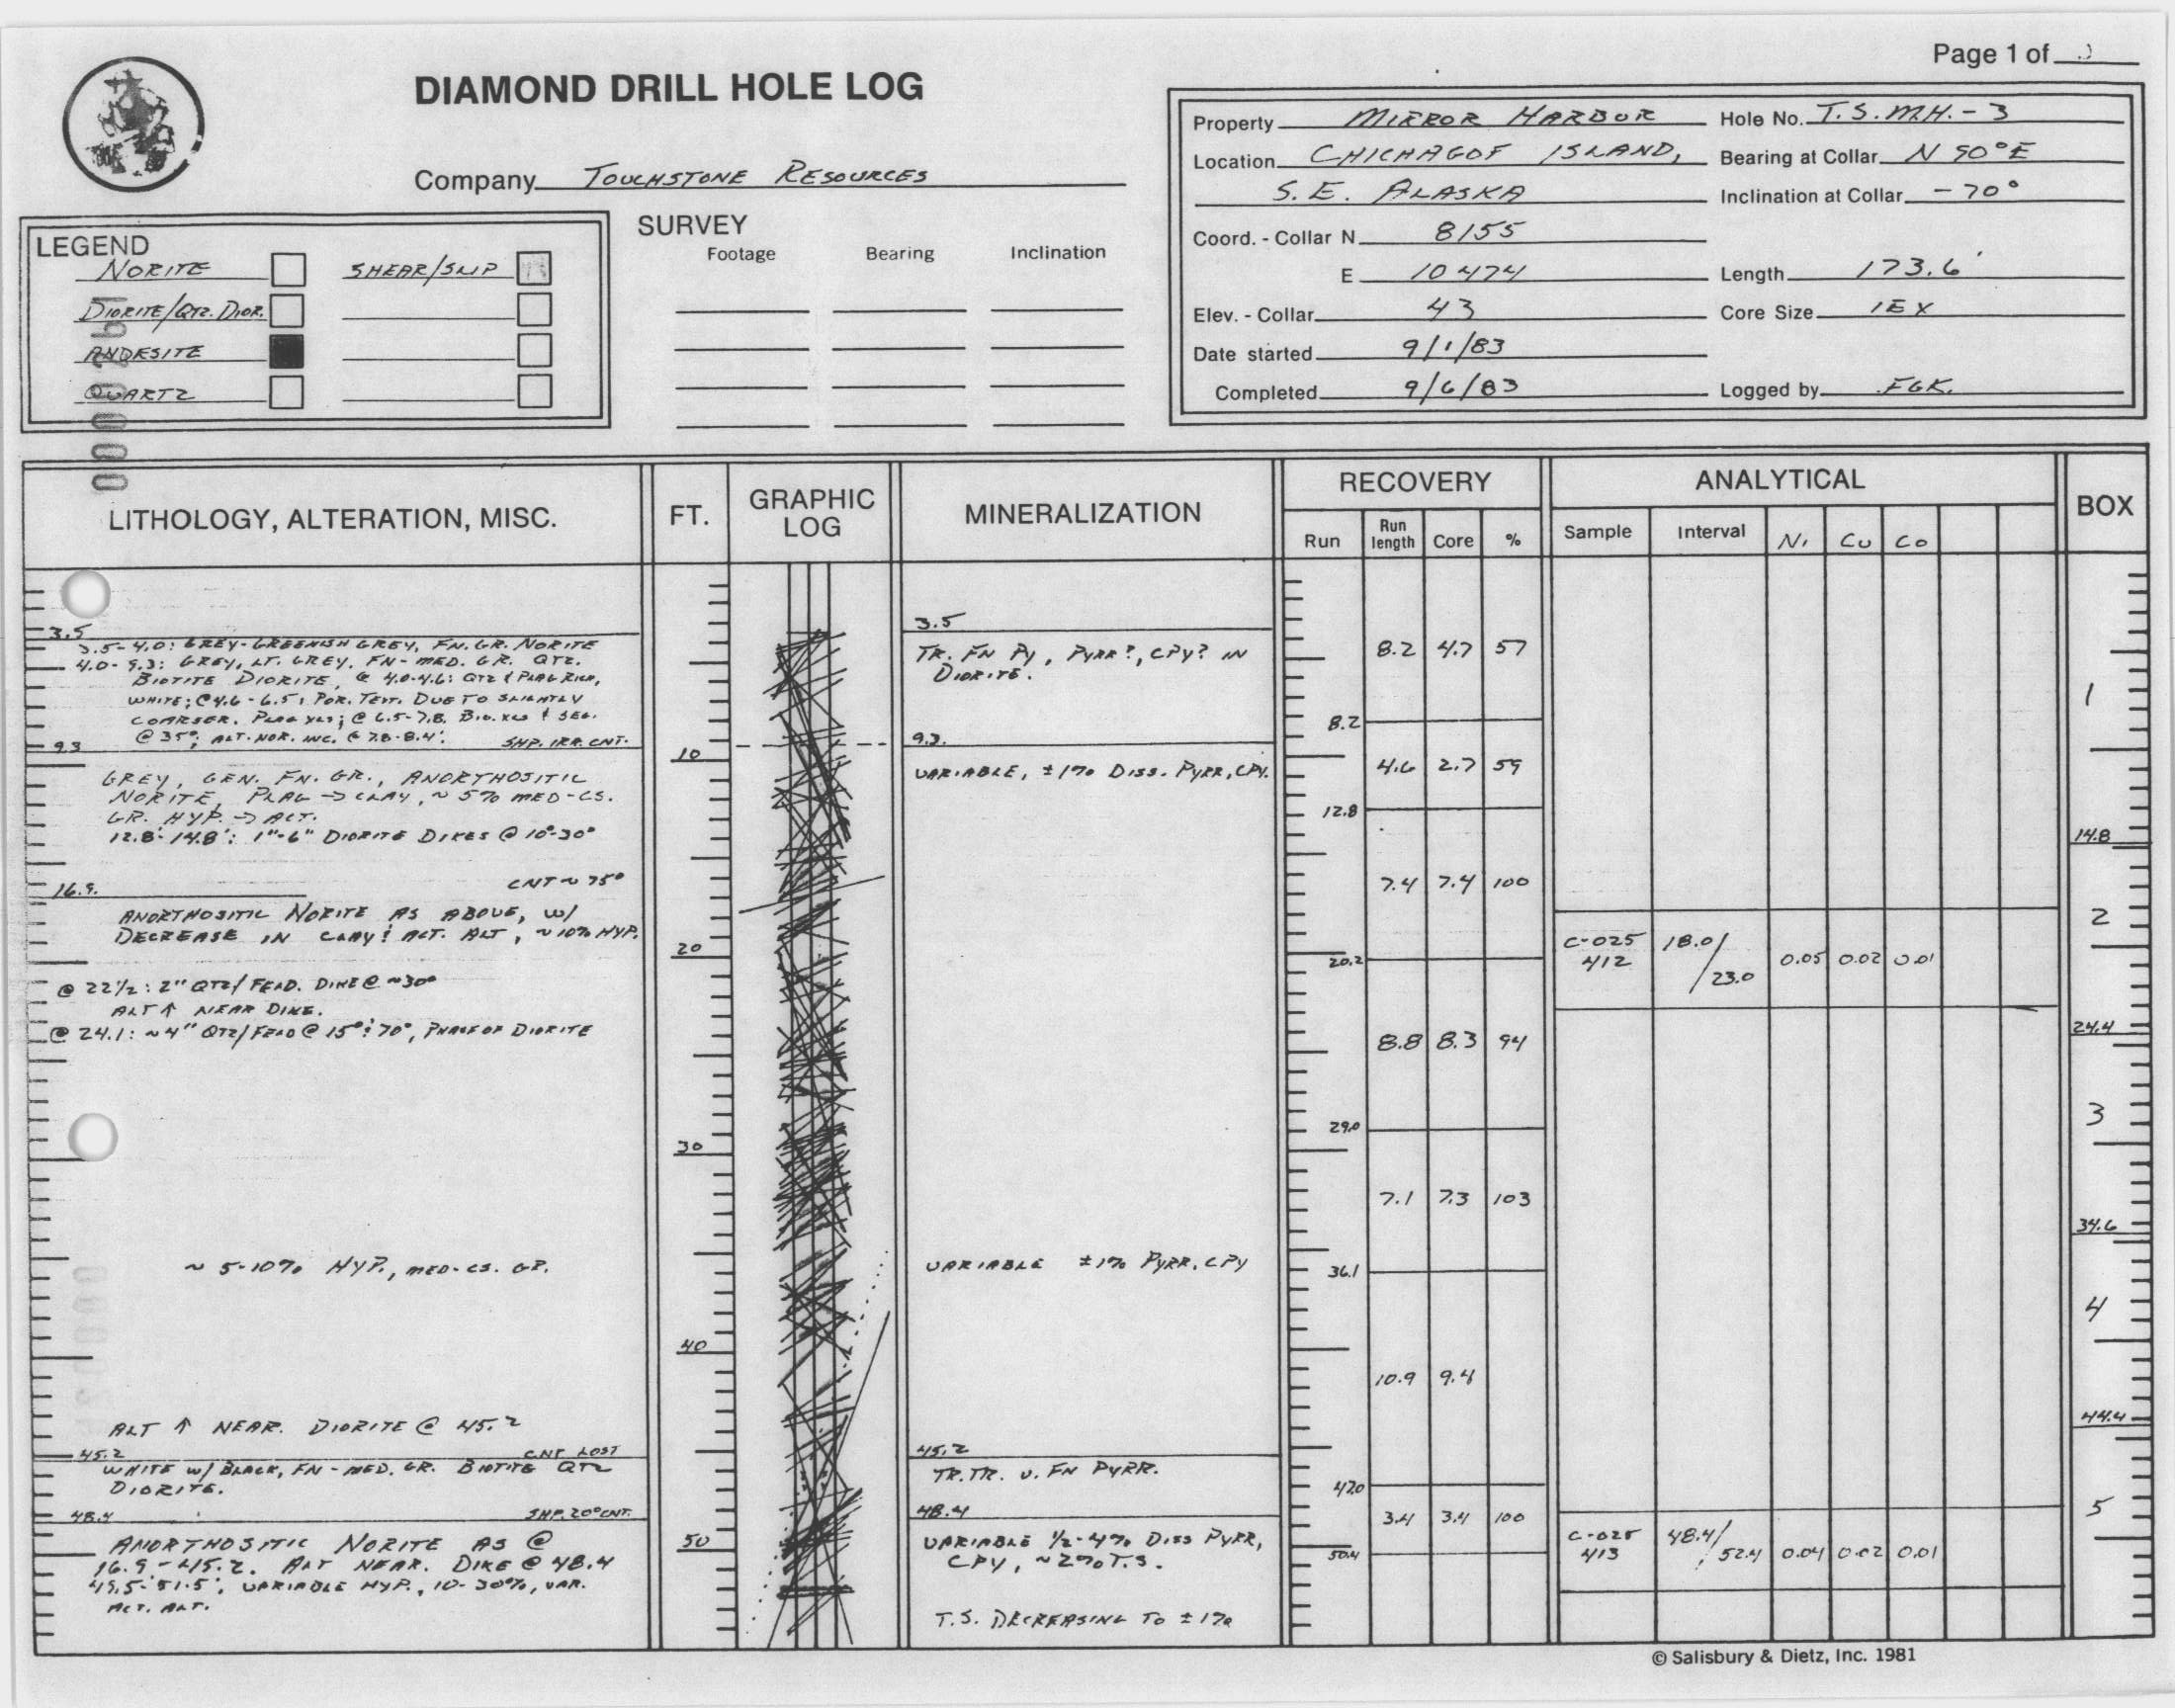 Page 1 of
DIAMOND DRILL HOLE LOG
Company TOUCHSTONE RESOURCES
Property MIRROR HARBOR
Hole No. T.S.M.H.-3
Location CHICHAGOF ISLAND,
Bearing at Collar N 90°E
S.E. ALASKA
Inclination at Collar -70°
Coord. - Collar N 8155
E 10474
Length 173.6'
Elev. - Collar 43
Core Size IEX
Date started 9/1/83
Completed 9/6/83
Logged by EGK.
LEGEND
NORITE
SHEAR/SLIP
DIORITE/QTZ. DIOR.
ANDESITE
QUARTZ
SURVEY
Footage Bearing Inclination
LITHOLOGY, ALTERATION, MISC.
FT.
GRAPHIC
LOG
MINERALIZATION
RECOVERY
Run
Run
length
Core
%
ANALYTICAL
Sample Interval Ni Cu Co
BOX
3.5
3.5-4.0: GREY-GREENISH GREY, FN. GR. NORITE
4.0-9.3: GREY, LT. GREY, FN-MED. GR. QTZ.
BIOTITE DIORITE, @ 4.0-4.6: QTZ & PLAG RICH,
WHITE; @ 4.6-6.5, POR. TEXT. DUE TO SLIGHTLY
COARSER, PLAG XLS; @ 6.5-7.8, BIO. XLS & SEG.
@ 35°; ALT. NOR. INC. @ 7.8-8.4'.
SHP. IRR. CNT.
9.3
GREY, GEN. FN. GR., ANORTHOSITIC
NORITE, PLAG → CLAY, ~ 5% MED-CS.
GR. HYP. → ACT.
12.8'-14.8': 1"-6" DIORITE DIKES @ 10°-30°
CNT ~ 75°
16.9.
ANORTHOSITIC NORITE AS ABOVE, W/
DECREASE IN CLAY & ACT. ALT, ~10% HYP.
@ 22 1/2: 2" QTZ/FELD. DIKE @ ~30°
ALT ↑ NEAR DIKE.
@ 24.1: ~4" QTZ/FELD @ 15° & 70°, PHASE OF DIORITE
~ 5-10% HYP., MED-CS. GR.
ALT ↑ NEAR. DIORITE @ 45.2
45.2
CNT LOST
WHITE W/ BLACK, FN-MED. GR. BIOTITE QTZ
DIORITE.
48.4
SHP. 20° CNT.
ANORTHOSITIC NORITE AS @
16.9-45.2. ALT NEAR. DIKE @ 48.4
49.5-51.5', VARIABLE HYP., 10-30%, VAR.
ACT. ALT.
10
20
30
40
50
3.5
TR. FN PY, PYRR?, CPY? IN
DIORITE.
9.3.
VARIABLE, ±1% DISS. PYRR, CPY.
VARIABLE ±1% PYRR, CPY
45.2
TR. TR. V. FN PYRR.
48.4
VARIABLE 1/2-4% DISS PYRR,
CPY, ~2% T.S.
T.S. DECREASING TO ±1%
8.2 4.7 57
8.2
4.6 2.7 59
12.8
7.4 7.4 100
20.2
8.8 8.3 94
29.0
7.1 7.3 103
36.1
10.9 9.4
47.0
3.4 3.4 100
50.4
C-025
412
18.0/
23.0
0.05 0.02 0.01
C-025
413
48.4/
52.4
0.04 0.02 0.01
1
14.8
2
24.4
3
34.6
4
44.4
5
© Salisbury & Dietz, Inc. 1981